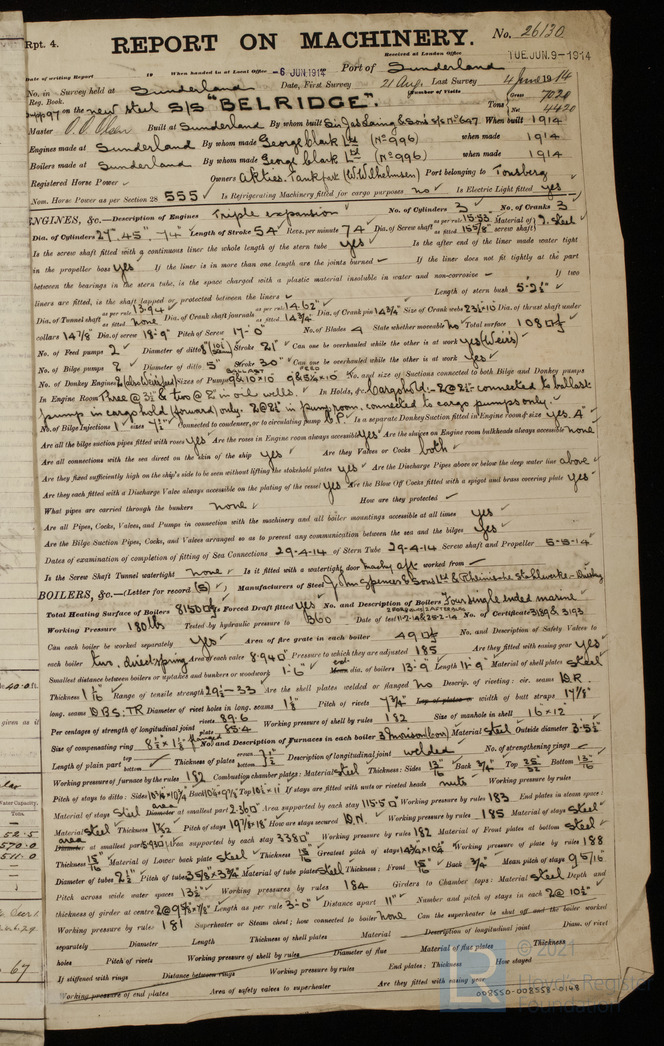 Rpt. 4.
REPORT ON MACHINERY.
No. 26130
Received at London Office TUE. JUN. 9-1914
Date of writing Report 19 When handed in at Local Office -6 JUN. 1914 Port of Sunderland
No. in Survey held at Sunderland Date, First Survey 21 Aug. Last Survey 4 June 1914
Reg. Book. (Number of Visits
on the new steel S/S "BELRIDGE". Tons Gross 7020 Net 4420
Master Built at Sunderland By whom built Sir Jas Laing & Sons Ltd No 647 When built 1914
Engines made at Sunderland By whom made George Clark Ltd (No 996) when made 1914
Boilers made at Sunderland By whom made George Clark Ltd (No 996) when made 1914
Registered Horse Power Owners Akties. Tankfart (W. Wilhelmsen) Port belonging to Tonsberg
Nom. Horse Power as per Section 28 555 Is Refrigerating Machinery fitted for cargo purposes no Is Electric Light fitted yes
ENGINES, &c.—Description of Engines Triple expansion No. of Cylinders 3 No. of Cranks 3
Dia. of Cylinders 27" 45" 74" Length of Stroke 54" Revs. per minute 74 Dia. of Screw shaft as per rule 15.53 as fitted 15 5/8" Material of screw shaft I. Steel
Is the screw shaft fitted with a continuous liner the whole length of the stern tube yes Is the after end of the liner made water tight
in the propeller boss yes If the liner is in more than one length are the joints burned — If the liner does not fit tightly at the part
between the bearings in the stern tube, is the space charged with a plastic material insoluble in water and non-corrosive — If two
liners are fitted, is the shaft lapped or protected between the liners Length of stern bush 5'-2 1/2"
Dia. of Tunnel shaft as per rule 13.94 as fitted none Dia. of Crank shaft journals as per rule 14.62" as fitted 14 3/4" Dia. of Crank pin 14 3/4" Size of Crank webs 23 1/2 x 10 Dia. of thrust shaft under
collars 14 7/8" Dia. of screw 18'-9" Pitch of Screw 17'-0" No. of Blades 4 State whether moveable no Total surface 108
No. of Feed pumps 2 Diameter of ditto Stroke 21" Can one be overhauled while the other is at work yes (Weirs)
No. of Bilge pumps 2 Diameter of ditto 5" Stroke 30" Can one be overhauled while the other is at work yes
No. of Donkey Engines 2 (also Weirs feed) Sizes of Pumps No. and size of Suctions connected to both Bilge and Donkey pumps
In Engine Room Three @ 3 1/2 & two @ 2" in oil wells. In Holds, &c. Cargo hold:- 2 @ 2 1/2 - connected to ballast
pump in cargo hold (forward) only. 2 @ 2 1/2 in pump room, connected to cargo pumps only.
No. of Bilge Injections 1 sizes 7 1/2" Connected to condenser, or to circulating pump C.P. Is a separate Donkey Suction fitted in Engine room & size yes. 4"
Are all the bilge suction pipes fitted with roses yes Are the roses in Engine room always accessible yes Are the sluices on Engine room bulkheads always accessible none
Are all connections with the sea direct on the skin of the ship yes Are they Valves or Cocks both
Are they fixed sufficiently high on the ship's side to be seen without lifting the stokehold plates yes Are the Discharge Pipes above or below the deep water line above
Are they each fitted with a Discharge Valve always accessible on the plating of the vessel yes Are the Blow Off Cocks fitted with a spigot and brass covering plate yes
What pipes are carried through the bunkers none How are they protected
Are all Pipes, Cocks, Valves, and Pumps in connection with the machinery and all boiler mountings accessible at all times yes
Are the Bilge Suction Pipes, Cocks, and Valves arranged so as to prevent any communication between the sea and the bilges yes
Dates of examination of completion of fitting of Sea Connections 29-4-14 of Stern Tube 29-4-14 Screw shaft and Propeller 5-5-14
Is the Screw Shaft Tunnel watertight none Is it fitted with a watertight door machy aft worked from —
BOILERS, &c.—(Letter for record (S)) Manufacturers of Steel John Spencer & Sons Ltd & Rheinische Stahlwerke
Total Heating Surface of Boilers 8150 Is Forced Draft fitted yes No. and Description of Boilers Four single ended marine
Working Pressure 180 lbs Tested by hydraulic pressure to 360 Date of test No. of Certificate 3189 & 3193
Can each boiler be worked separately yes Area of fire grate in each boiler 49 No. and Description of Safety Valves to
each boiler two, direct spring Area of each valve 8.940" Pressure to which they are adjusted 185 Are they fitted with easing gear yes
Smallest distance between boilers or uptakes and bunkers or woodwork 1'-6" dia. of boilers 13'-9" Length 11'-9" Material of shell plates Steel
Thickness 1 1/16 Range of tensile strength 29 1/2 - 33 Are the shell plates welded or flanged no Descrip. of riveting: cir. seams D.R.
long. seams D.B.S. TR Diameter of rivet holes in long. seams 1 1/8" Pitch of rivets 7 3/4" Lap of plates or width of butt straps 17 7/8"
Per centages of strength of longitudinal joint rivets 89.6 plate 85.4 Working pressure of shell by rules 182 Size of manhole in shell 16" x 12"
Size of compensating ring 8 1/2 x 1 1/2 flanged No. and Description of Furnaces in each boiler 3 Morison (born) Material steel Outside diameter 3'-5 1/2"
Length of plain part top bottom Thickness of plates crown bottom Description of longitudinal joint welded No. of strengthening rings —
Working pressure of furnace by the rules 182 Combustion chamber plates: Material steel Thickness: Sides Back 3/4" Top Bottom 13/16
Pitch of stays to ditto: Sides Back Top If stays are fitted with nuts or riveted heads nuts Working pressure by rules 183 End plates in steam space:
Material of stays steel area at smallest part 2.360" Area supported by each stay 115.50" Working pressure by rules 185 Material of stays steel
Material steel Thickness 1 1/32 Pitch of stays 19 7/8 x 18" How are stays secured D.N. Working pressure by rules 182 Material of Front plates at bottom steel
area at smallest part Area supported by each stay 338" Working pressure of plate by rules 188
Thickness 15/16 Material of Lower back plate steel Thickness 15/16 Greatest pitch of stays Mean pitch of stays 9 5/16"
Diameter of tubes 2 1/2" Pitch of tubes 3 5/8 x 3 3/4" Material of tube plates steel Thickness: Front 15/16" Back 3/4"
Pitch across wide water spaces 13 1/2" Working pressures by rules 184 Girders to Chamber tops: Material steel Depth and
thickness of girder at centre Length as per rule 3'-0" Distance apart 11" Number and pitch of stays in each 2 @ 10 1/2"
Working pressure by rule: 181 Superheater or Steam chest; how connected to boiler none Can the superheater be shut off and the boiler worked
separately Diameter Length Thickness of shell plates Material Description of longitudinal joint Diam. of rivet
holes Pitch of rivets Working pressure of shell by rules Diameter of flue Material of flue plates Thickness
If stiffened with rings Distance between rings Working pressure by rules End plates: Thickness How stayed
Working pressure of end plates Area of safety valves to superheater Are they fitted with easing gear
© 2021
Lloyd's Register
Foundation
008550-008558-0148